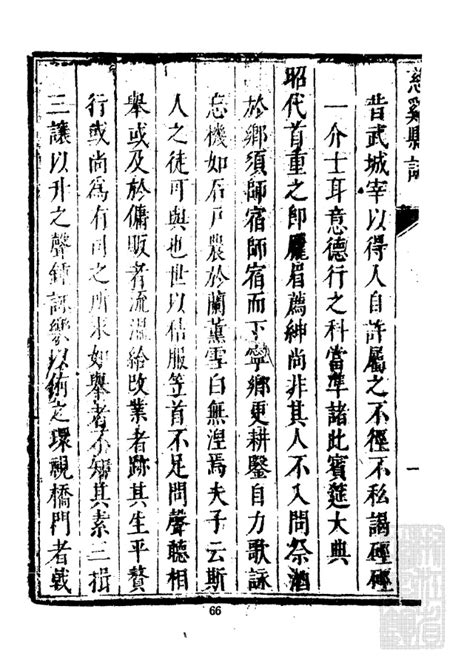 慈谿縣誌
昔武城宰以得人自許屬之不徑不私謁硜硜
一介士耳意德行之科當準諸此賓筵大典
昭代首重之卽龐眉薦紳尚非其人不入問祭酒
於鄉須師宿師宿而下寧鄉更耕鑿自力歌詠
忘機如石戸農於蘭薰雪白無涅焉夫子云斯
人之徒可與也世以佶服笠首不足問聲聽相
舉或及於傭販者流濫給改業者跡其生平贅
行或尚爲有司之所求如舉者不獨其素三揖
三讓以升之聲鍾詠樂以術之環視橋門者戟
一
66